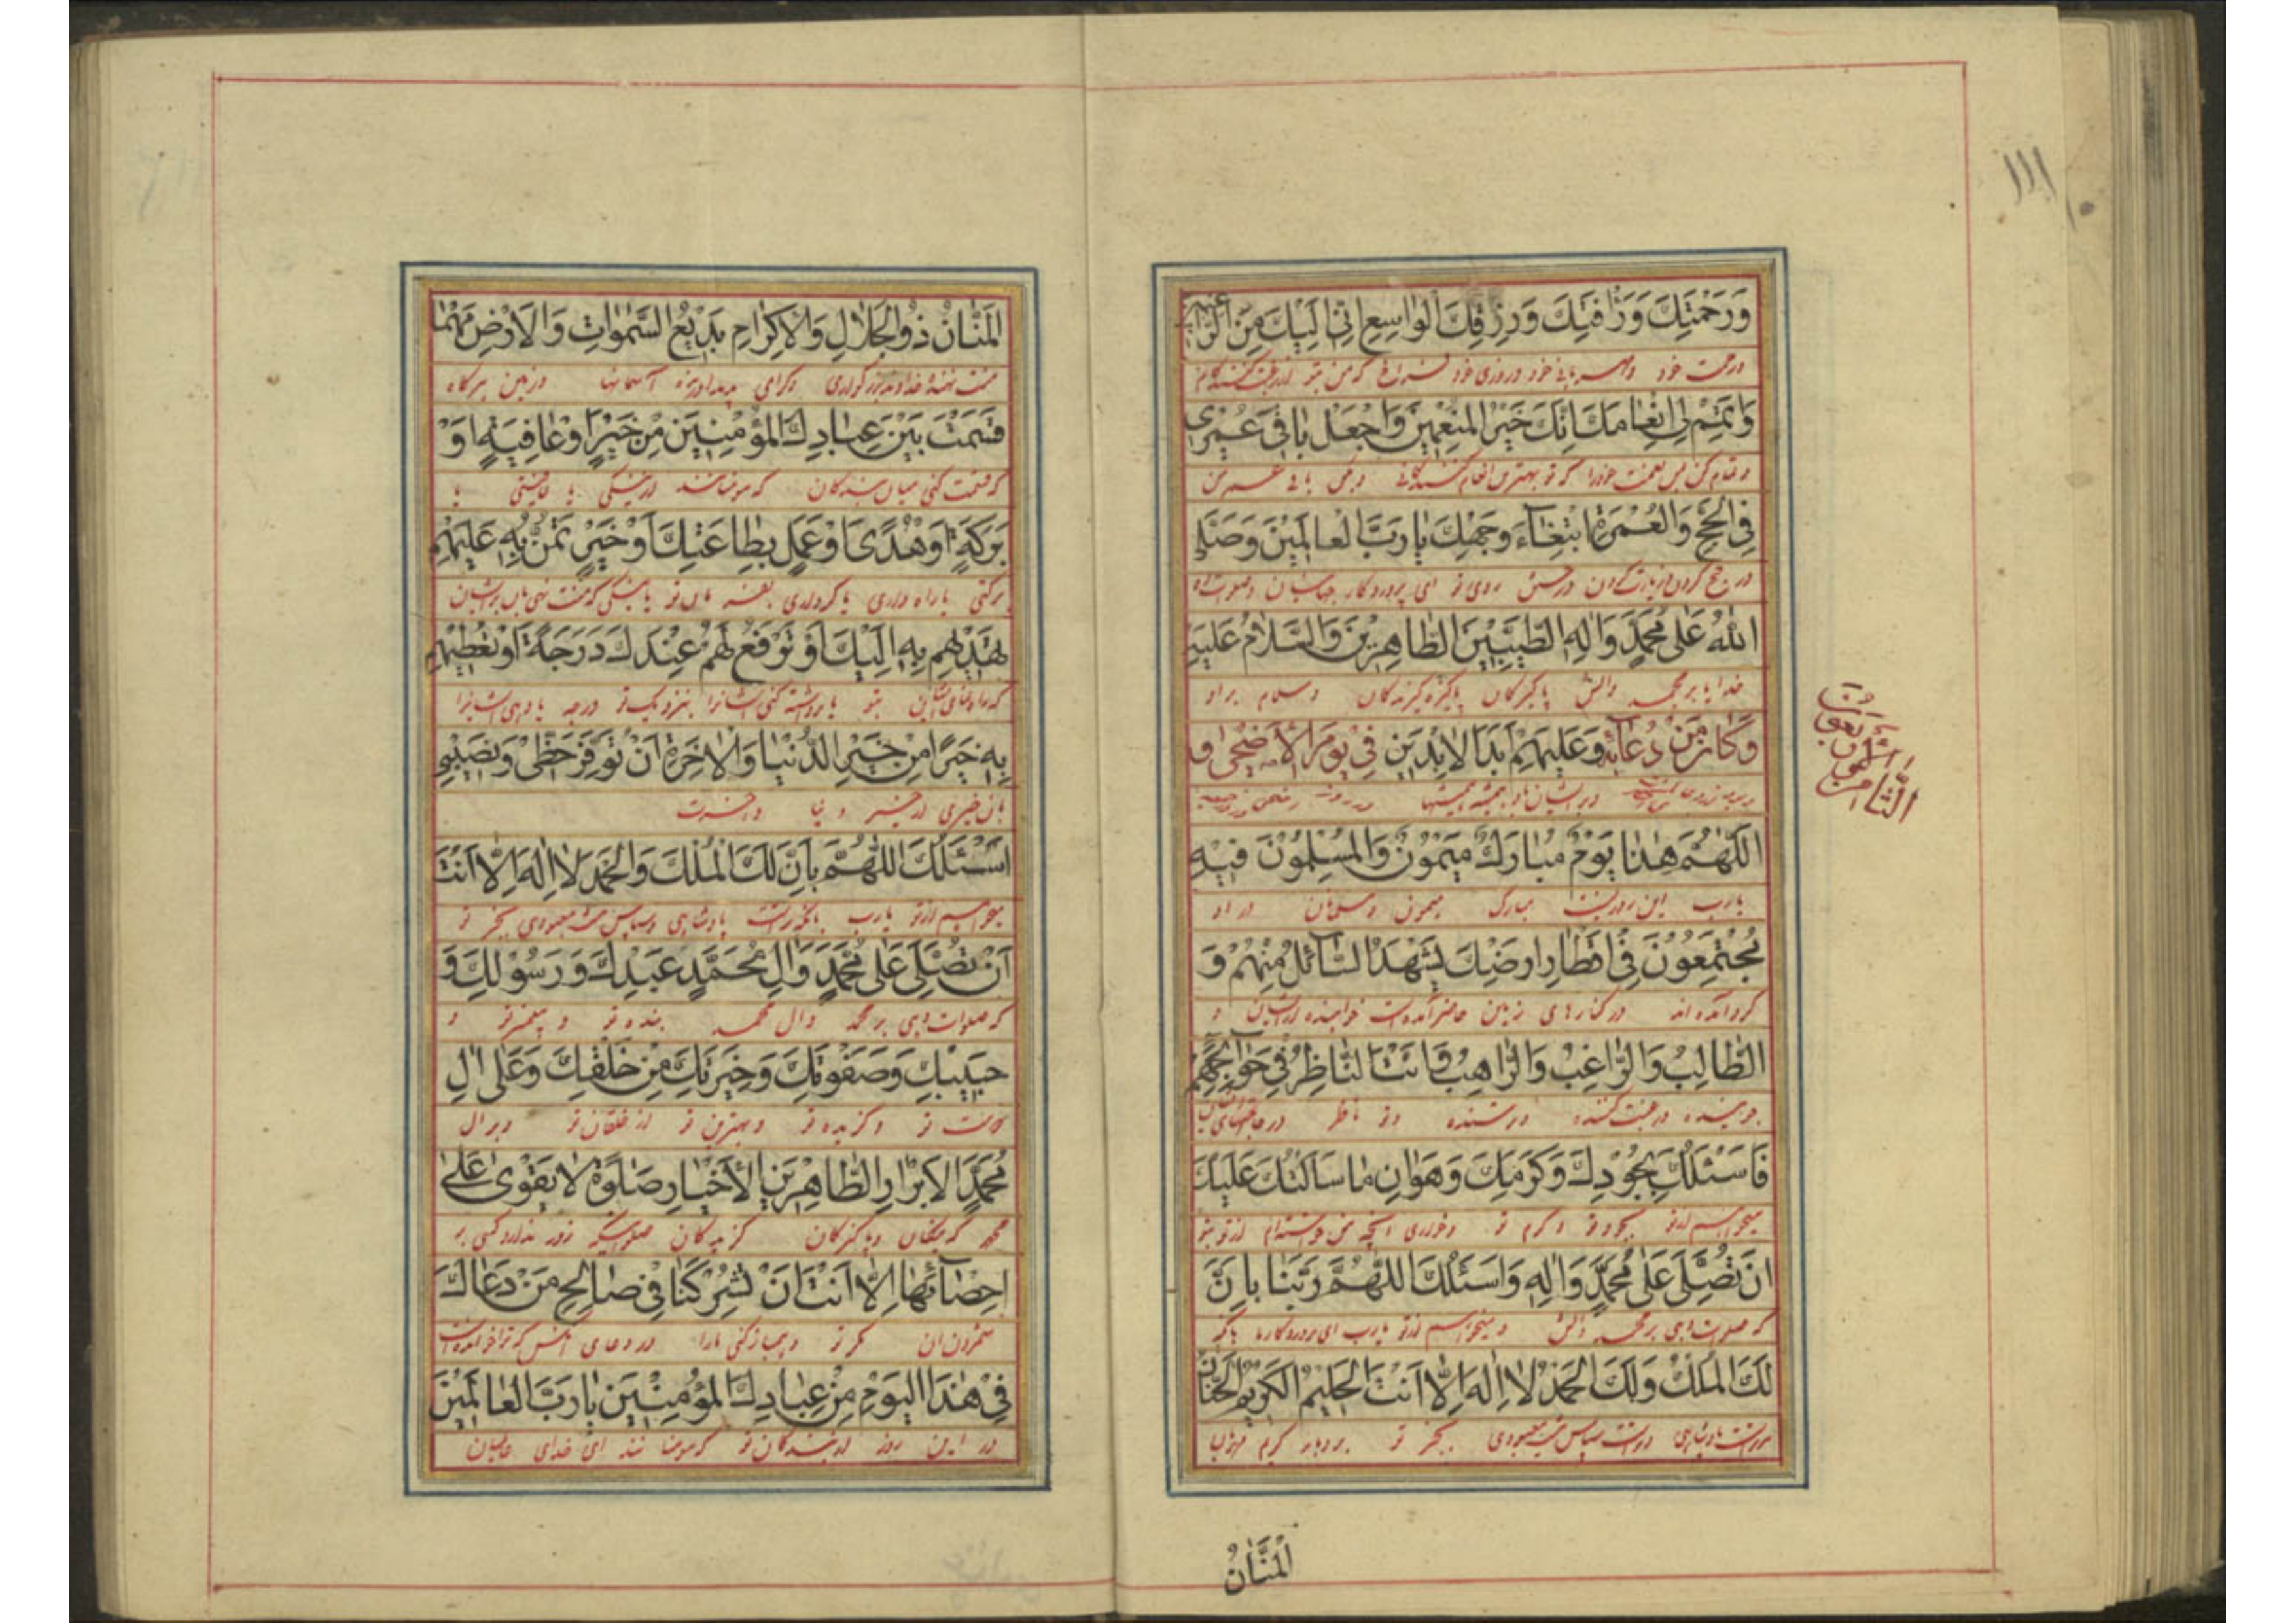 ١١١
وَرَحْمَتِكَ وَرَأْفَتِكَ وَرِزْقِكَ الْوَاسِعِ اِنّٖى اِلَيْكَ مِنَ الرَّاغِبٖينَ
ورحمت خود ومهربانی خود وروزی خود فراخ که من بتو از رغبت کنندگانم
وَاَتْمِمْ لٖى اِنْعَامَكَ اِنَّكَ خَيْرُ الْمُنْعِمٖينَ وَاجْعَلْ بَاقٖى عُمْرٖى
وتمام کن بمن نعمت خود را که تو بهترین انعام کنندگانی وبکن باقی عمر من
فِى الْحَجِّ وَالْعُمْرَةِ ابْتِغَاءَ وَجْهِكَ يَا رَبَّ الْعَالَمٖينَ وَصَلَّى
در حج کردن وزیارت کردن در جستن روی تو ای پروردگار جهانیان وصلوات ده
اللّٰهُ عَلٰى مُحَمَّدٍ وَاٰلِهِ الطَّيِّبٖينَ الطَّاهِرٖينَ وَالسَّلَامُ عَلَيْهِ
خدایا بر محمد وآلش پاکیزگان پاکیزه کردگان وسلام بر او
وَكَانَ مِنْ دُعَائِهٖ وَعَلَيْهِمْ اَبَدَ الْاٰبِدٖينَ فٖى يَوْمِ الْاَضْحٰى وَ
وبر ایشان باد همیشه همیشها در روز
الثَّامِنُ وَالْاَرْبَعُونَ
اَللّٰهُمَّ هٰذَا يَوْمٌ مُبَارَكٌ مَيْمُونٌ وَالْمُسْلِمُونَ فٖيهِ
یارب این روزیست مبارک میمون ومسلمانان در او
مُجْتَمِعُونَ فٖى اَقْطَارِ اَرْضِكَ يَشْهَدُ السَّائِلُ مِنْهُمْ وَ
گرد آمده‌اند در کنارهای زمین حاضر آمده است خواهنده از ایشان و
الطَّالِبُ وَالرَّاغِبُ وَالرَّاهِبُ وَاَنْتَ النَّاظِرُ فٖى حَوَائِجِهِمْ
جوینده ورغبت کننده وترسنده وتو ناظر در حاجتهای ایشان
فَاَسْئَلُكَ بِجُودِكَ وَكَرَمِكَ وَهَوَانِ مَا سَاَلْتُكَ عَلَيْكَ
میخواهم از تو بجود تو وکرم تو وخواری آنچه من خواسته‌ام از تو بتو
اَنْ تُصَلِّىَ عَلٰى مُحَمَّدٍ وَاٰلِهٖ وَاَسْئَلُكَ اللّٰهُمَّ رَبَّنَا بِاَنَّ
که صلوات دهی بر محمد وآلش ومیخواهم از تو یارب ای پروردگار ما بآنکه
لَكَ الْمُلْكَ وَلَكَ الْحَمْدُ لَا اِلٰهَ اِلَّا اَنْتَ الْحَلٖيمُ الْكَرٖيمُ الْحَنَّانُ
مر تراست پادشاهی وتراست سپاس نیست معبودی بجز تو بردبار کریم مهربان
اَلْمَنَّانُ
اَلْمَنَّانُ ذُو الْجَلَالِ وَالْاِكْرَامِ بَدٖيعُ السَّمٰوَاتِ وَالْاَرْضِ مَهْمَا
منت نهنده خداوند بزرگواری وگرامی پدید آورنده آسمانها وزمین هرگاه
قَسَمْتَ بَيْنَ عِبَادِكَ الْمُؤْمِنٖينَ مِنْ خَيْرٍ اَوْ عَافِيَةٍ اَوْ
که قسمت کنی میان بندگان که مومنانند از نیکی یا عافیتی یا
بَرَكَةٍ اَوْ هُدًى اَوْ عَمَلٍ بِطَاعَتِكَ اَوْ خَيْرٍ تَمُنُّ بِهٖ عَلَيْهِمْ
برکتی یا راه داری یا کرداری بفرمان تو یا نیکی که منت نهی بآن بر ایشان
تَهْدٖيهِمْ بِهٖ اِلَيْكَ اَوْ تَرْفَعُ لَهُمْ عِنْدَكَ دَرَجَةً اَوْ تُعْطٖيهِمْ
که راه نمائی ایشان بتو یا برداشته کنی ایشانرا بنزدیک تو درجه یا دهی ایشانرا
بِهٖ خَيْرًا مِنْ خَيْرِ الدُّنْيَا وَالْاٰخِرَةِ اَنْ تُوَفِّرَ حَظّٖى وَنَصٖيبٖى
بآن خیری از خیر دنیا وآخرت
اَسْئَلُكَ اللّٰهُمَّ بِاَنَّ لَكَ الْمُلْكَ وَالْحَمْدَ لَا اِلٰهَ اِلَّا اَنْتَ
میخواهم از تو یارب بآنکه تراست پادشاهی وسپاس نیست معبودی بجز تو
اَنْ تُصَلِّىَ عَلٰى مُحَمَّدٍ وَاٰلِ مُحَمَّدٍ عَبْدِكَ وَرَسُولِكَ وَ
که صلوات دهی بر محمد وآل محمد بنده تو وپیغمبر تو و
حَبٖيبِكَ وَصَفْوَتِكَ وَخِيَرَتِكَ مِنْ خَلْقِكَ وَعَلٰى اٰلِ
دوست تو وگزیده تو وبهترین تو از خلقان تو وبر آل
مُحَمَّدٍ الْاَبْرَارِ الطَّاهِرٖينَ الْاَخْيَارِ صَلٰوةً لَا يَقْوٰى عَلٰى
محمد که نیکان وپاکیزگان گزیدگان صلواتیکه زور ندارد کسی بر
اِحْصَائِهَا اِلَّا اَنْتَ اَنْ تُشْرِكَنَا فٖى صَالِحِ مَنْ دَعَاكَ
شمردن آن مگر تو وهمباز کنی ما را در دعای آنکس که ترا خوانده است
فٖى هٰذَا الْيَوْمِ مِنْ عِبَادِكَ الْمُؤْمِنٖينَ يَا رَبَّ الْعَالَمٖينَ
در این روز از بندگان تو که مومنانند ای خدای عالمیان